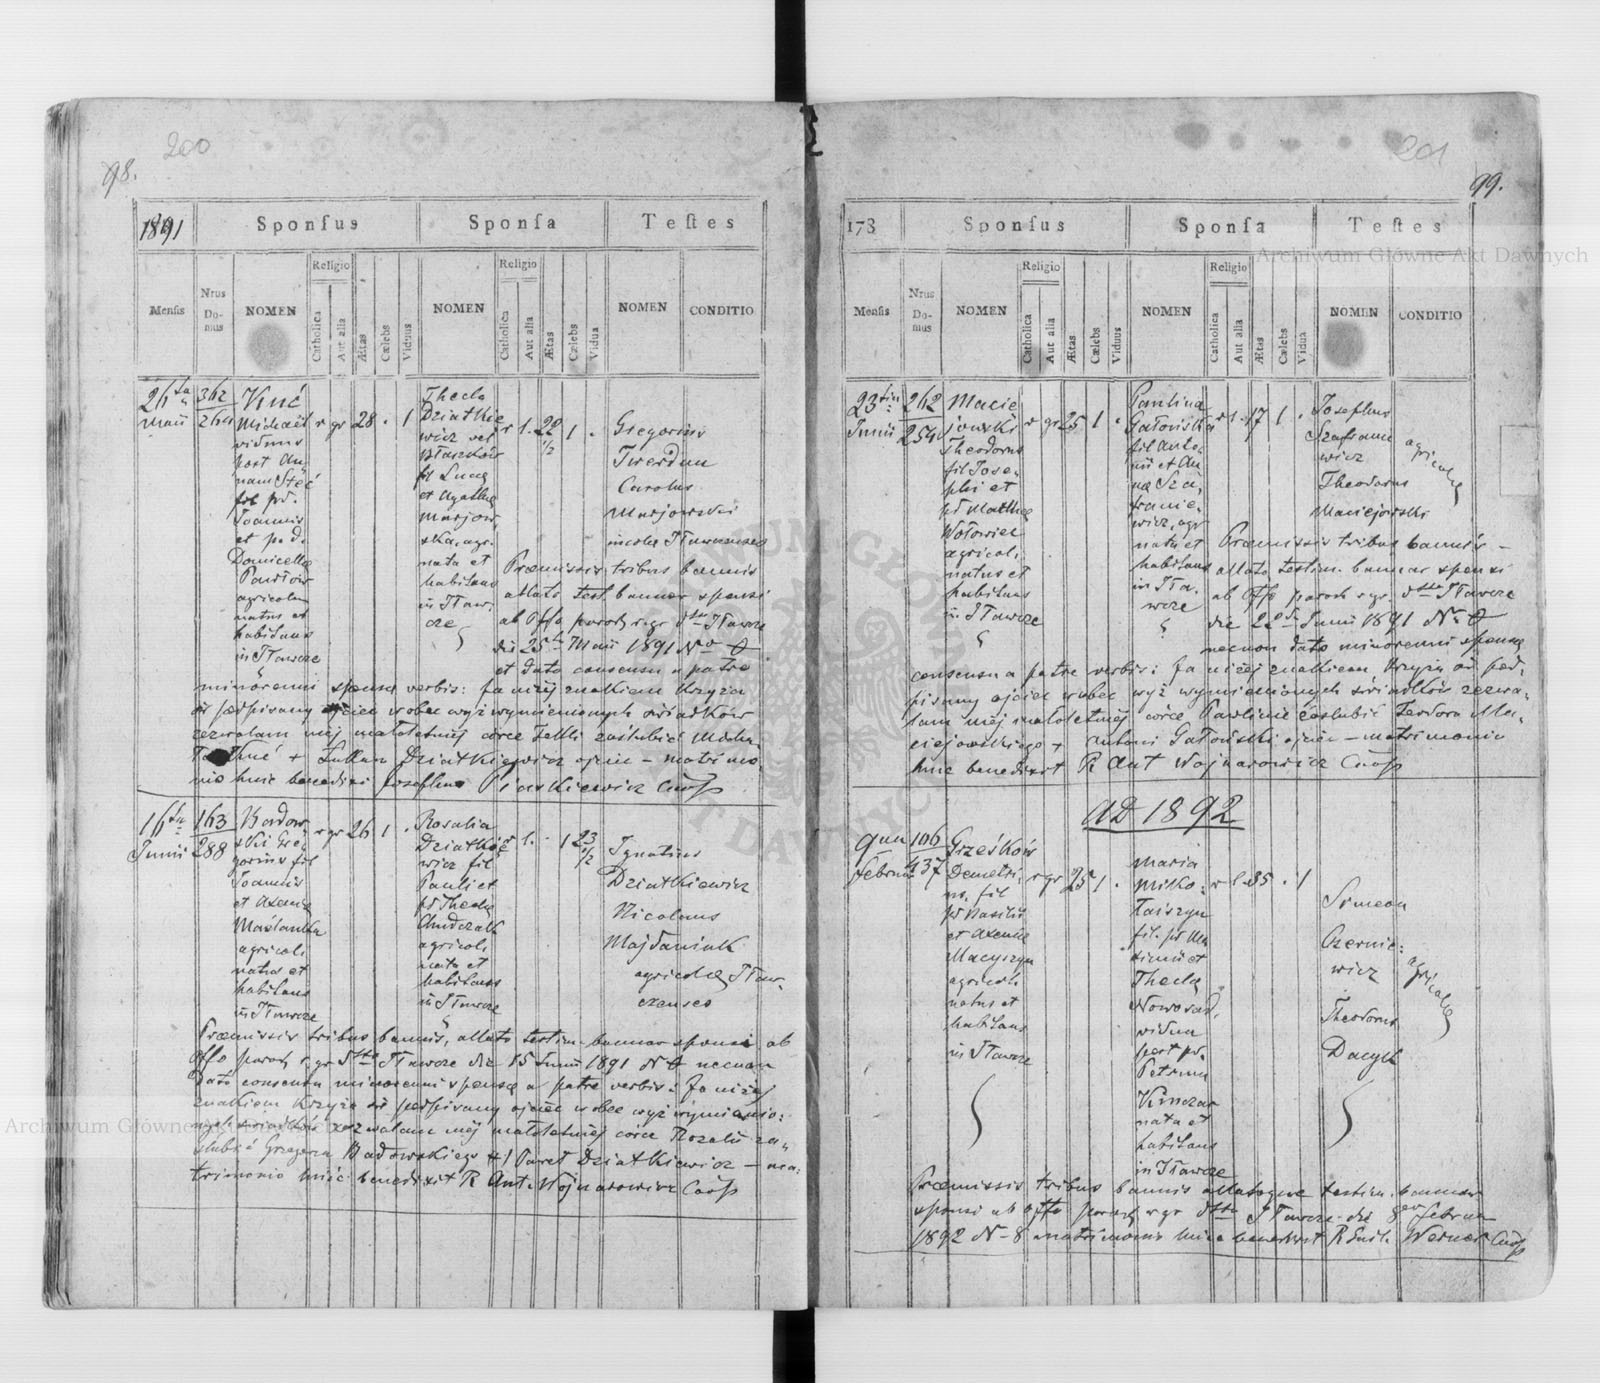 98.
200
1891
Sponsus
Sponsa
Testes
Mensis
Nrus Domus
NOMEN
Religio
Catholica
Aut alia
Ætas
Cœlebs
Viduus
NOMEN
Religio
Catholica
Aut alia
Ætas
Cœlebs
Vidua
NOMEN
CONDITIO
26ta
Maii
362
264
Kuć
Michaël
viduus
post An
nam Steć
fil pd.
Joannis
et p. d.
Domicellæ
Pawłow
agricola
natus et
habitans
in Iławcze
r gr 28 . 1
Thecla
Dziatkie
wicz vel
fil Lucæ
et Agathæ
Marjow
ska, agr.
nata et
habitans
in Iław:
cze
r l. 22 1/2 1 .
Gregorius
Twerdun
Carolus
Marjowski
incolæ Iławczenses
Præmissis tribus bannis
allato test. bannor sponsi
ab Offo paroch r. gr dtto Iławcze
die 25ta Maii 1891 No
et dato consensu a patre
minorenni sponsæ verbis: Ja niżej znakiem krzyża
podpisany ojciec wobec wyż wymienionych świadków
zezwalam mej małoletniej córce Tekli zaślubić Micha
Kuć + Łukan Dziatkiewicz ojciec – matrimo
nio hunc benedixi Josephus Piaskiewicz Coop
16ta
Junii
163
288
Badow
ski Gre
gorius fil
Joannis
et Axenia
Maślanka
agricola
natus et
habitans
in Iławcze
r gr 26 1 .
Rosalia
Dziatkie
wicz fil
Pauli et
pd Theclæ
Chudczak
agricola
nata et
habitans
in Iławcze
r l. . 1 23 1/2
Ignatius
Dziatkiewicz
Nicolaus
Majdaniuk
agricolæ Iław-
czenses
Præmissis tribus bannis, allato testim. bannor sponsi ab
Offo paroch r. gr dtto Iławcze die 15 Junii 1891 N necnon
dato consensu minorenni sponsæ a patre verbis: Ja niżej
znakiem krzyża podpisany ojciec wobec wyż wymienio:
nych świadków zezwalam mej małoletniej córce Rozalii za„
ślubić Grzegorza Badowskiego +/ Paweł Dziatkiewicz – ma:
trimonio huic benedixit R Ant. Wojnarowicz Coop
99.
201
178
Sponsus
Sponsa
Testes
Mensis
Nrus Domus
NOMEN
Religio
Catholica
Aut alia
Ætas
Cœlebs
Viduus
NOMEN
Religio
Catholica
Aut alia
Ætas
Cœlebs
Vidua
NOMEN
CONDITIO
23tia
Junii
262
254
Macie
jowski
Theodorus
fil Jose-
phi et
pd Mathæ
Wołowiec
agricola
natus et
habitans
in Iławcze
r gr 25 1 .
Paulina
Gatoński
fil Anto-
nii et An
næ Sza,
franie-
wicz, agr
nata et
habitans
in Iła-
wcze
r l. 17 1 .
Josephus
Szafranie
wicz
Theodorus
Maciejowski
agricolæ
Præmissis tribus bannis –
allato testim. bannor sponsi
ab Offo paroch r. gr. dtto Iławcze
die 22da Junii 1891 No
necnon dato minorenni sponsæ
consensu a patre verbis: Ja niżej znakiem krzyża pod-
pisany ojciec wobec wyż wymienionych świadków zezwa-
lam mej małoletniej córce Paulinie zaślubić Teodora Ma-
ciejowskiego + Antoni Gatoński ojciec – matrimonio
hunc benedixit R Ant Wojnarowicz Coop
AD 1892
9na
Februa
106
437
Grześków
Demetri
us, fil
pd Basilii
et Axeniæ
Macyszyn
agricola
natus et
habitans
in Iławcze
r gr 25 1 .
Maria
Miko:
łaiszyn
fil. pd Ma
ximi et
Theclæ
Nowosad,
vidua
post pd.
Petrum
Kinczar
nata et
habitans
in Iławcze
r l. 35 . 1
Simeon
Czernie:
wicz
Theodorus
Dacyk
agricolæ
Præmissis tribus bannis allatoque testim. bannor
sponsi ab offo paroch r gr dtto Iławcze die 8va Februa
1892 N – 8 matrimonio huic benedixit R Emil. Werner Coop
Archiwum Główne Akt Dawnych
Archiwum Główne Akt Dawnych